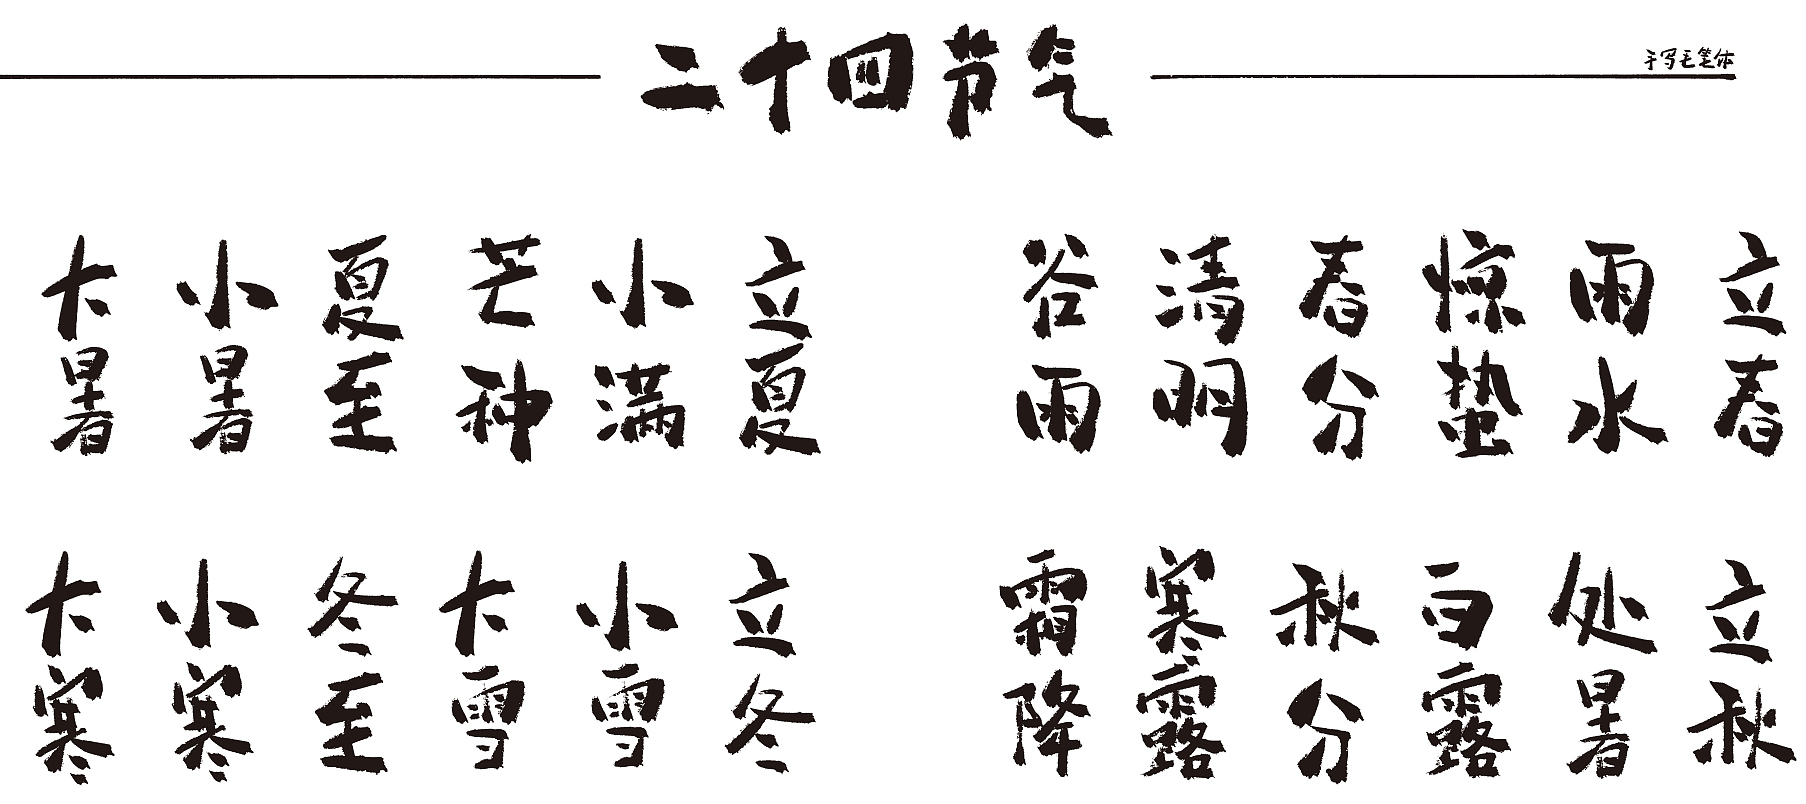 二十四节气
手写毛笔体
立春
雨水
惊蛰
春分
清明
谷雨
立夏
小满
芒种
夏至
小暑
大暑
立秋
处暑
白露
秋分
寒露
霜降
立冬
小雪
大雪
冬至
小寒
大寒